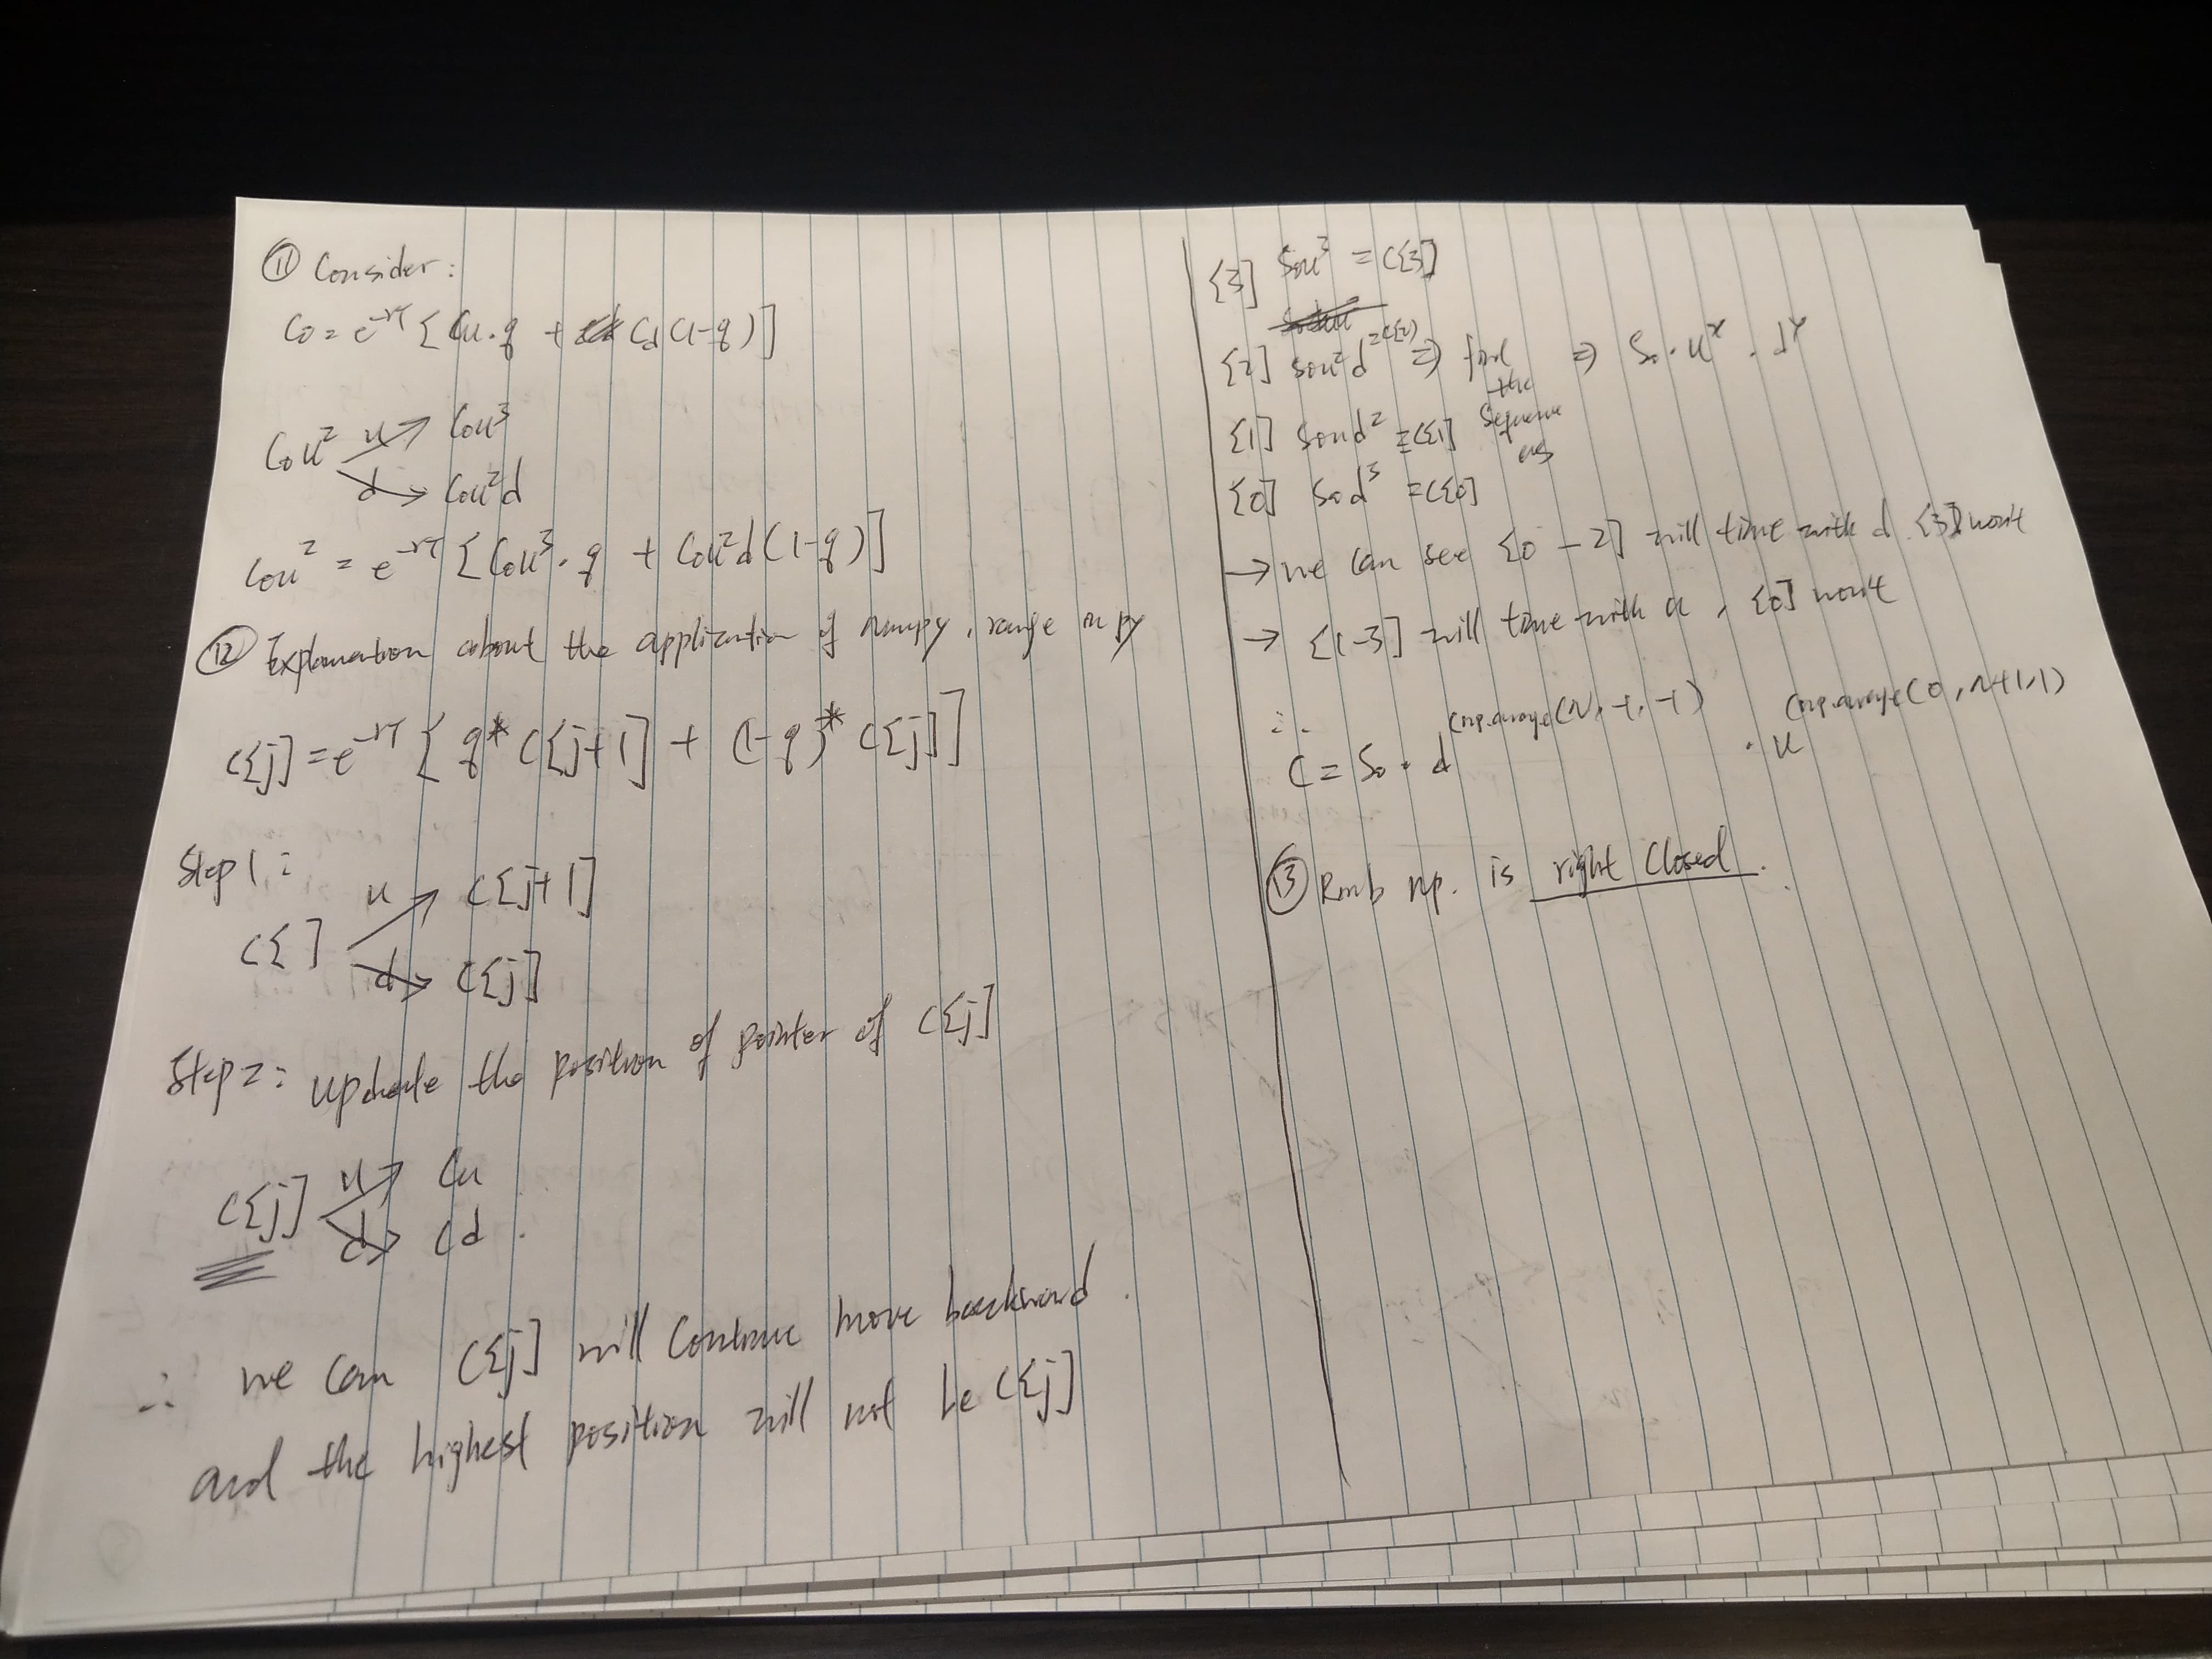 ⑪ Consider:
C0 = e^-rT [Cu·q + Cd(1-q)]
C0u^2 u→ C0u^3
d→ C0u^2d
C0u^2 = e^-rT [C0u^3·q + C0u^2d(1-q)]
⑫ Explanation about the application of numpy, range in py
C[j] = e^-rT [q* C[j+1] + (1-q)* C[j]]
Step 1:
C[ ] u→ C[j+1]
d→ C[j]
Step 2: update the position of pointer of C[j]
C[j] u→ Cu
d→ Cd.
∴ we can C[j] will continue move backward.
and the highest position will not be C[j]
[3] S0u^3 = C[3]
[2] S0u^2d = C[2] ⇒ find the sequence as ⇒ S0·u^x·d^y
[1] S0ud^2 = C[1]
[0] S0d^3 = C[0]
→ we can see [0-2] will time with d [3] won't
→ [1-3] will time with u, [0] won't
∴ C = S0·d^(np.arange(N,-1,-1)·u^(np.arange(0,N+1,1)
⑬ Rmb np. is right closed.